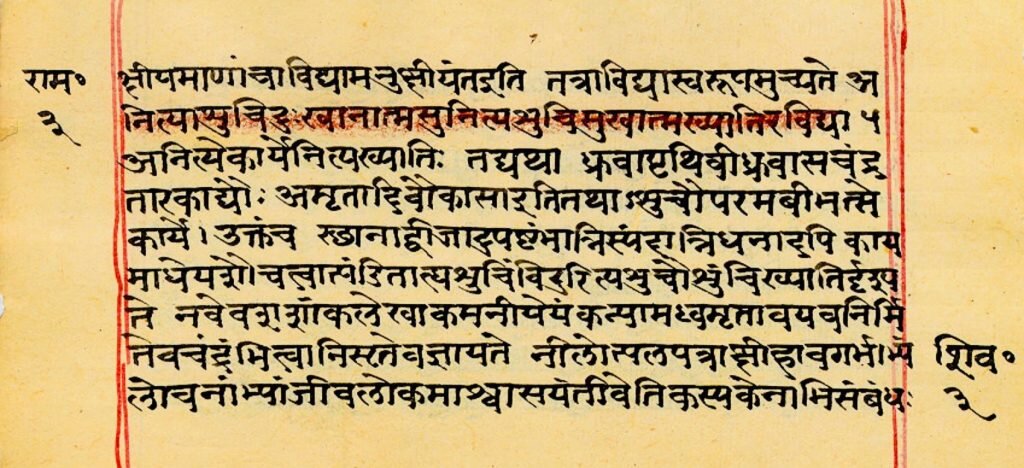 राम॰
३
क्षीयमाणांचाविद्यामनुक्षीयंतइति तत्राविद्यास्वरूपमुच्यते अ
नित्यासुचिदुःखानात्मसुनित्यशुचिसुखात्मख्यातिरविद्या ५
अनित्येकार्येनित्यख्यातिः तद्यथा ध्रवापृथिवीध्रवासचंद्र
तारकाद्यौः अमृतादिवौकासाइतितथाऽसुचौपरमबीभत्से
काये। उक्तंच स्छानाद्बीजादुपष्टंभान्निस्पंदान्निधनादपि काय
माधेयशौचत्वात्पंडितात्यशुचिंविदुरित्यशुचौशुचिख्यातिर्दृश्य
ते नवेवशशांकलेखाकमनीयेयंकन्यामध्वमृतावयवनिर्मि
तेवचंद्रंभित्वानिसृतेवज्ञायते नीलोत्पलपत्राक्षीहावगर्भाभ्यां
लोचनाभ्यांजीवलोकमाश्वासयंतीवेतिकस्यकेनाभिसंबंधः
शिव॰
३